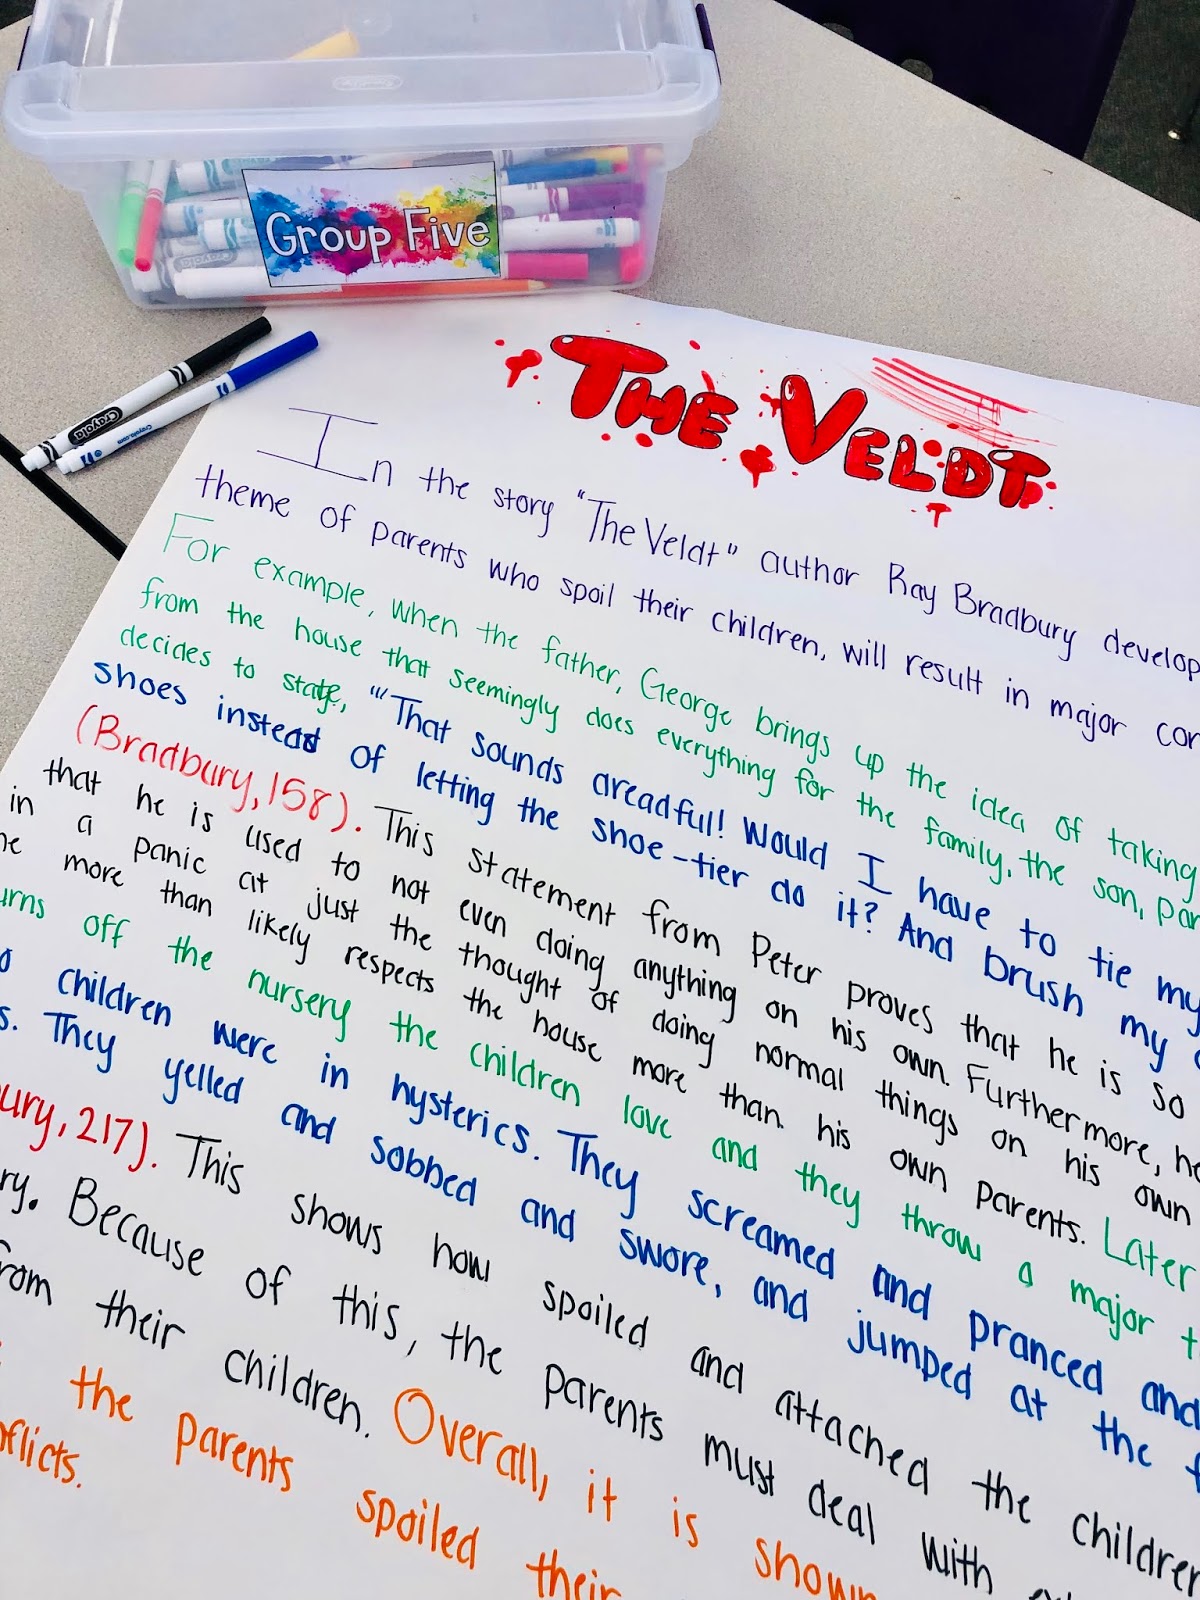 Group Five
Crayola
Crayola
THE VELDT
In the story "The Veldt" author Ray Bradbury develop
theme of parents who spoil their children, will result in major con
For example, when the father, George brings up the idea of taking
from the house that seemingly does everything for the family, the son,
decides to state, "'That sounds dreadful! Would I have to tie my
shoes instead of letting the shoe-tier do it? And brush my
(Bradbury, 158). This statement from Peter proves that he is so
that he is used to not even doing anything on his own. Furthermore, he
in a panic at just the thought of doing normal things on his own
more than likely respects the house more than his own parents. Later
urns off the nursery the children love and they throw a major
children were in hysterics. They screamed and pranced and
s. They yelled and sobbed and swore, and jumped at the
bury, 217). This shows how spoiled and attached the children
ry. Because of this, the parents must deal with
from their children. Overall, it is shown
the parents spoiled their
nflicts.